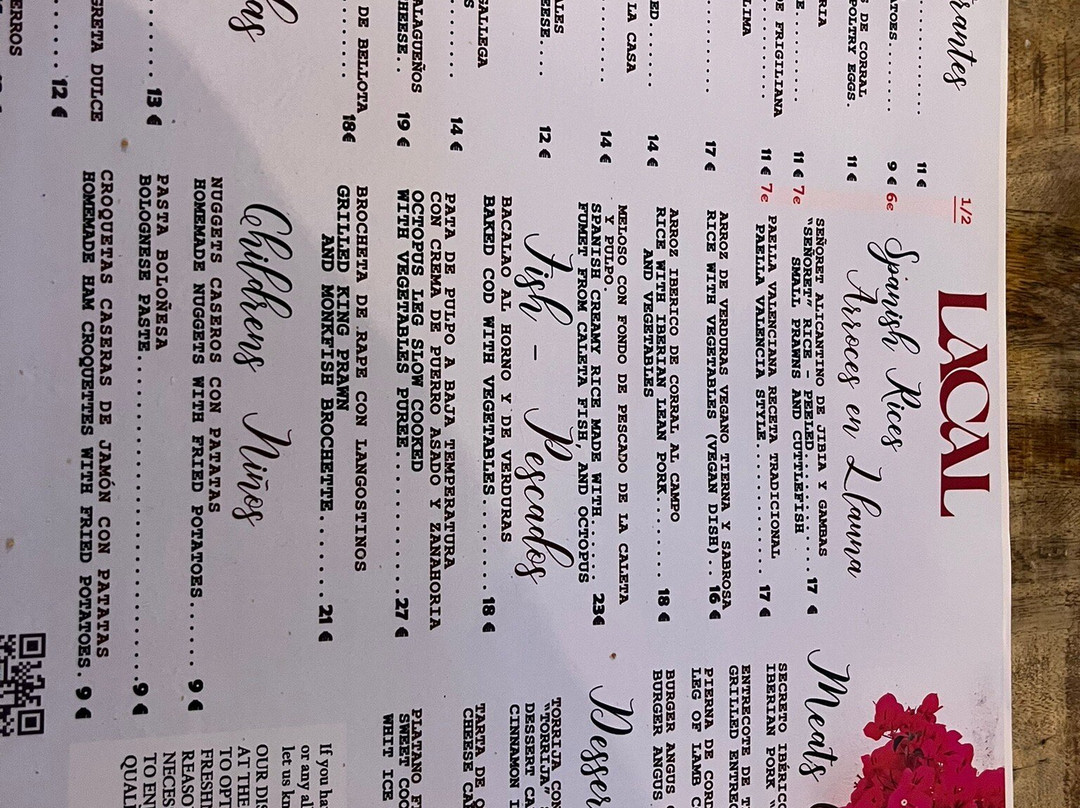 LACAL
rantes
11 €
ATOES......
9 € 6e
1/2
S DE CORRAL
POLTRY EGGS.
11 €
RIA
E.... 11 € 7e
DE FRIGILIANA
11 € 7e
LIMA
17 €
ED...... 14 €
LA CASA
14 €
ALES
EESE... 12 €
GALLEGA
S
14 €
ALAGUEÑOS
HEESE.. 19 €
DE BELLOTA
18€
las
13 €
GRETA DULCE
12 €
ERROS
Spanish Rices
Arroces en Llauna
SEÑORET ALICANTINO DE JIBIA Y GAMBAS
"SEÑORET" RICE - PEELED........ 17 €
SMALL PRAWNS AND CUTTLEFISH
PAELLA VALENCIANA RECETA TRADICIONAL
PAELLA VALENCIA STYLE.......... 17 €
ARROZ DE VERDURAS VEGANO TIERNA Y SABROSA
RICE WITH VEGETABLES (VEGAN DISH).. 16 €
ARROZ IBERICO DE CORRAL AL CAMPO
RICE WITH IBERIAN LEAN PORK....... 18 €
AND VEGETABLES
MELOSO CON FONDO DE PESCADO DE LA CALETA
Y PULPO.
SPANISH CREAMY RICE MADE WITH...... 23€
FUMET FROM CALETA FISH, AND OCTOPUS
Fish - Pescados
BACALAO AL HORNO Y DE VERDURAS
BAKED COD WITH VEGETABLES....... 18 €
PATA DE PULPO A BAJA TEMPERATURA
CON CREMA DE PUERRO ASADO Y ZANAHORIA
OCTOPUS LEG SLOW COOKED
WITH VEGETABLES PUREE......... 27 €
BROCHETA DE RAPE CON LANGOSTINOS
GRILLED KING PRAWN
AND MONKFISH BROCHETTE....... 21 €
Childrens Niños
NUGGETS CASEROS CON PATATAS
HOMEMADE NUGGETS WITH FRIED POTATOES...... 9 €
PASTA BOLOÑESA
BOLOGNESE PASTE.................... 9 €
CROQUETAS CASERAS DE JAMÓN CON PATATAS
HOMEMADE HAM CROQUETTES WITH FRIED POTATOES. 9 €
Meats
SECRETO IBÉRIC
IBERIAN PORK "
ENTRECOTE DE T
GRILLED ENTREC
PIERNA DE CORD
LEG OF LAMB C
BURGER ANGUS C
BURGER ANGUS
Desser
TORRIJA CON
"TORRIJA"
DESSERT CA
CINNAMON I
TARTA DE Q
CHEESE CA
PLATANO F
SWEET COO
WHIT ICE
If you ha
or any al
let us kn
OUR DIS
AT THE
TO OPT
FRESH
REASO
NECES
TO EN
QUAL